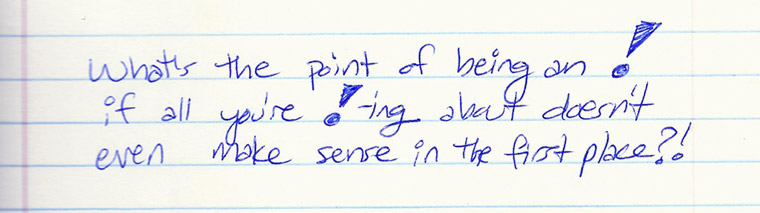 What's the point of being an !
if all you're !-ing about doesn't
even make sense in the first place?!